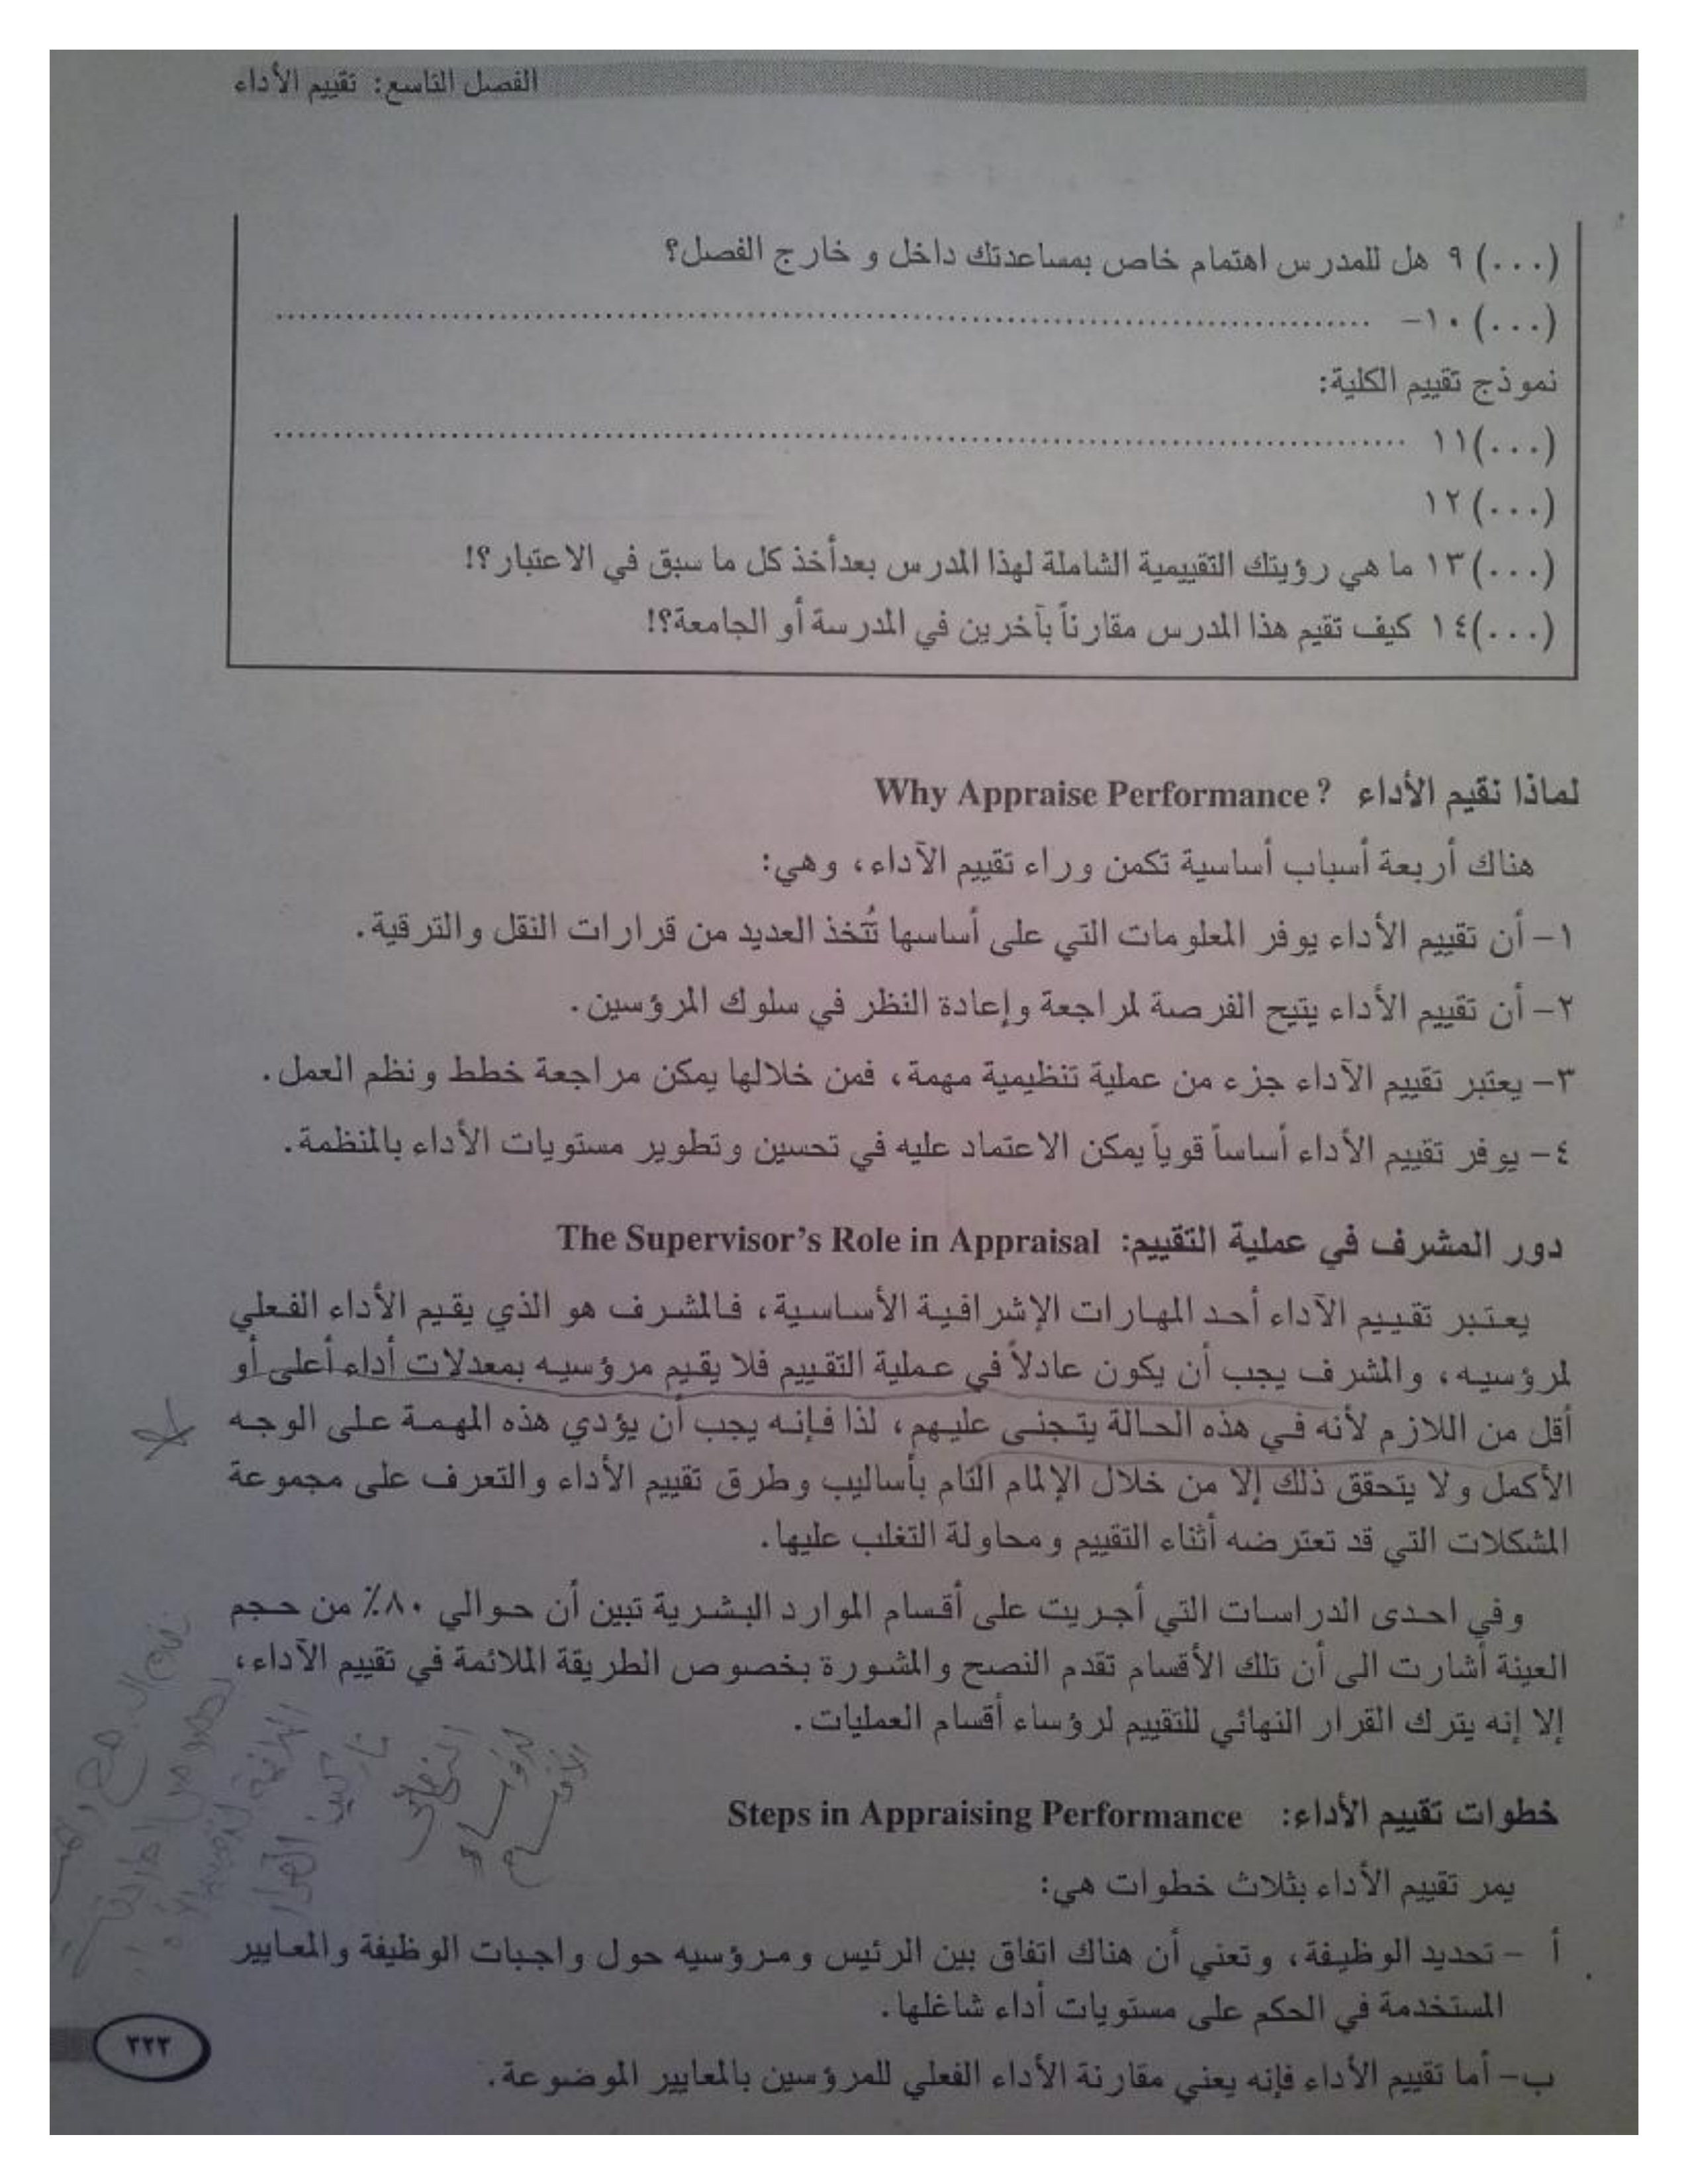 الفصل التاسع: تقييم الأداء
(...) ٩ هل للمدرس اهتمام خاص بمساعدتك داخل و خارج الفصل؟
(...) ١٠- ................................................................
نموذج تقييم الكلية:
(...) ١١ ................................................................
(...) ١٢
(...) ١٣ ما هي رؤيتك التقييمية الشاملة لهذا المدرس بعدأخذ كل ما سبق في الاعتبار؟!
(...) ١٤ كيف تقيم هذا المدرس مقارناً بآخرين في المدرسة أو الجامعة؟!
لماذا نقيم الأداء Why Appraise Performance ?
هناك أربعة أسباب أساسية تكمن وراء تقييم الآداء، وهي:
١- أن تقييم الأداء يوفر المعلومات التي على أساسها تُتخذ العديد من قرارات النقل والترقية.
٢- أن تقييم الأداء يتيح الفرصة لمراجعة وإعادة النظر في سلوك المرؤسين.
٣- يعتبر تقييم الآداء جزء من عملية تنظيمية مهمة، فمن خلالها يمكن مراجعة خطط ونظم العمل.
٤- يوفر تقييم الأداء أساساً قوياً يمكن الاعتماد عليه في تحسين وتطوير مستويات الأداء بالمنظمة.
دور المشرف في عملية التقييم: The Supervisor's Role in Appraisal
يعتبر تقييم الآداء أحد المهارات الإشرافية الأساسية، فالمشرف هو الذي يقيم الأداء الفعلي
لمرؤسيه، والمشرف يجب أن يكون عادلاً في عملية التقييم فلا يقيم مرؤسيه بمعدلات أداء أعلى أو
أقل من اللازم لأنه في هذه الحالة يتجنى عليهم، لذا فإنه يجب أن يؤدي هذه المهمة على الوجه
الأكمل ولا يتحقق ذلك إلا من خلال الإلمام التام بأساليب وطرق تقييم الأداء والتعرف على مجموعة
المشكلات التي قد تعترضه أثناء التقييم ومحاولة التغلب عليها.
وفي احدى الدراسات التي أجريت على أقسام الموارد البشرية تبين أن حوالي ٨٠٪ من حجم
العينة أشارت الى أن تلك الأقسام تقدم النصح والمشورة بخصوص الطريقة الملائمة في تقييم الآداء،
إلا إنه يترك القرار النهائي للتقييم لرؤساء أقسام العمليات.
خطوات تقييم الأداء: Steps in Appraising Performance
يمر تقييم الأداء بثلاث خطوات هي:
أ - تحديد الوظيفة، وتعني أن هناك اتفاق بين الرئيس ومرؤسيه حول واجبات الوظيفة والمعايير
المستخدمة في الحكم على مستويات أداء شاغلها.
ب- أما تقييم الأداء فإنه يعني مقارنة الأداء الفعلي للمرؤسين بالمعايير الموضوعة.
٣٢٣